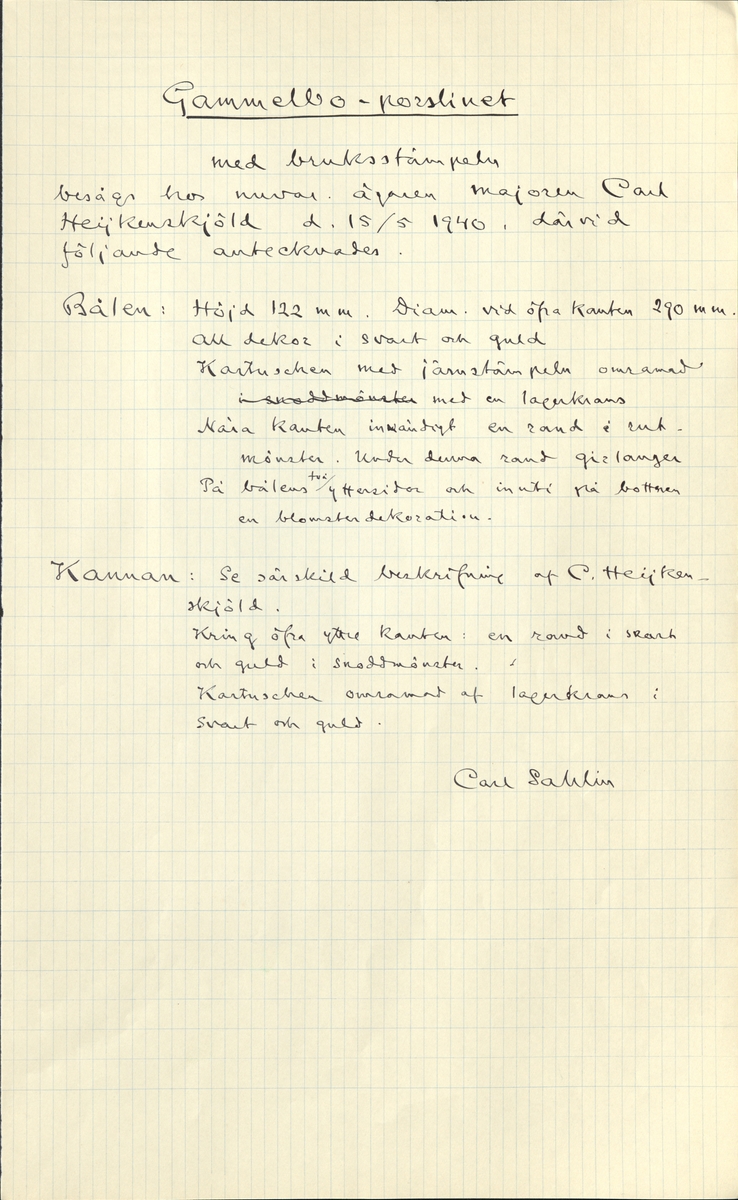 Gammelbo-porslinet
med bruksstämpeln
besågs hos nuvar. ägaren majoren Carl
Heijkenskjöld d. 15/5 1940, därvid
följande antecknades.
Bålen: Höjd 122 mm. Diam. vid öfra kanten 290 mm.
All dekor i svart och guld
Kartuschen med järnstämpeln omramad
i snoddmönster med en lagerkrans
Nära kanten invändigt en rand i rut-
mönster. Under denna rand girlanger
På bålens två yttersidor och inuti på bottnen
en blomsterdekoration.
Kannan: Se särskild beskrifning af C. Heijken-
skjöld.
Kring öfra yttre kanten: en rand i svart
och guld i snoddmönster.
Kartuschen omramad af lagerkrans i
svart och guld.
Carl Sahlin